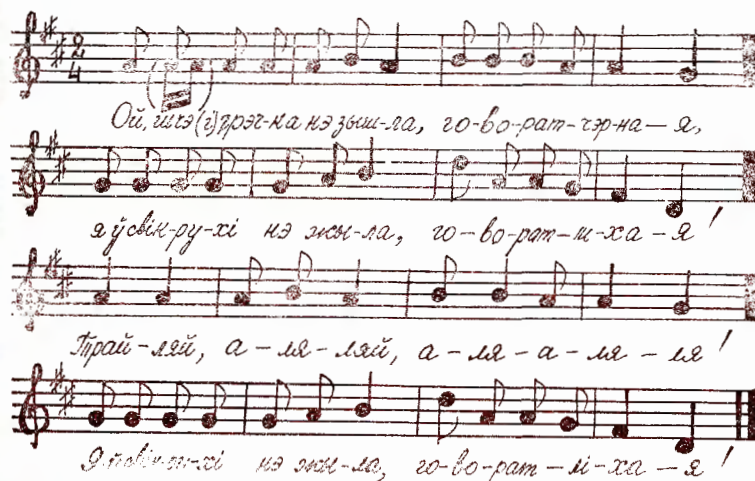 2 4
Ой, шчэ (і) грэч-ка нэ зыш-ла, го-во-рат-чэр-на-я,
я ў свік-ру-хі нэ жы-ла, го-во-рат-ли-ха-я!
Трай-ляй, а-ля-ляй, а-ля-а-ля-ля!
нэ жы-ла, го-во-рат-лі-ха-я!